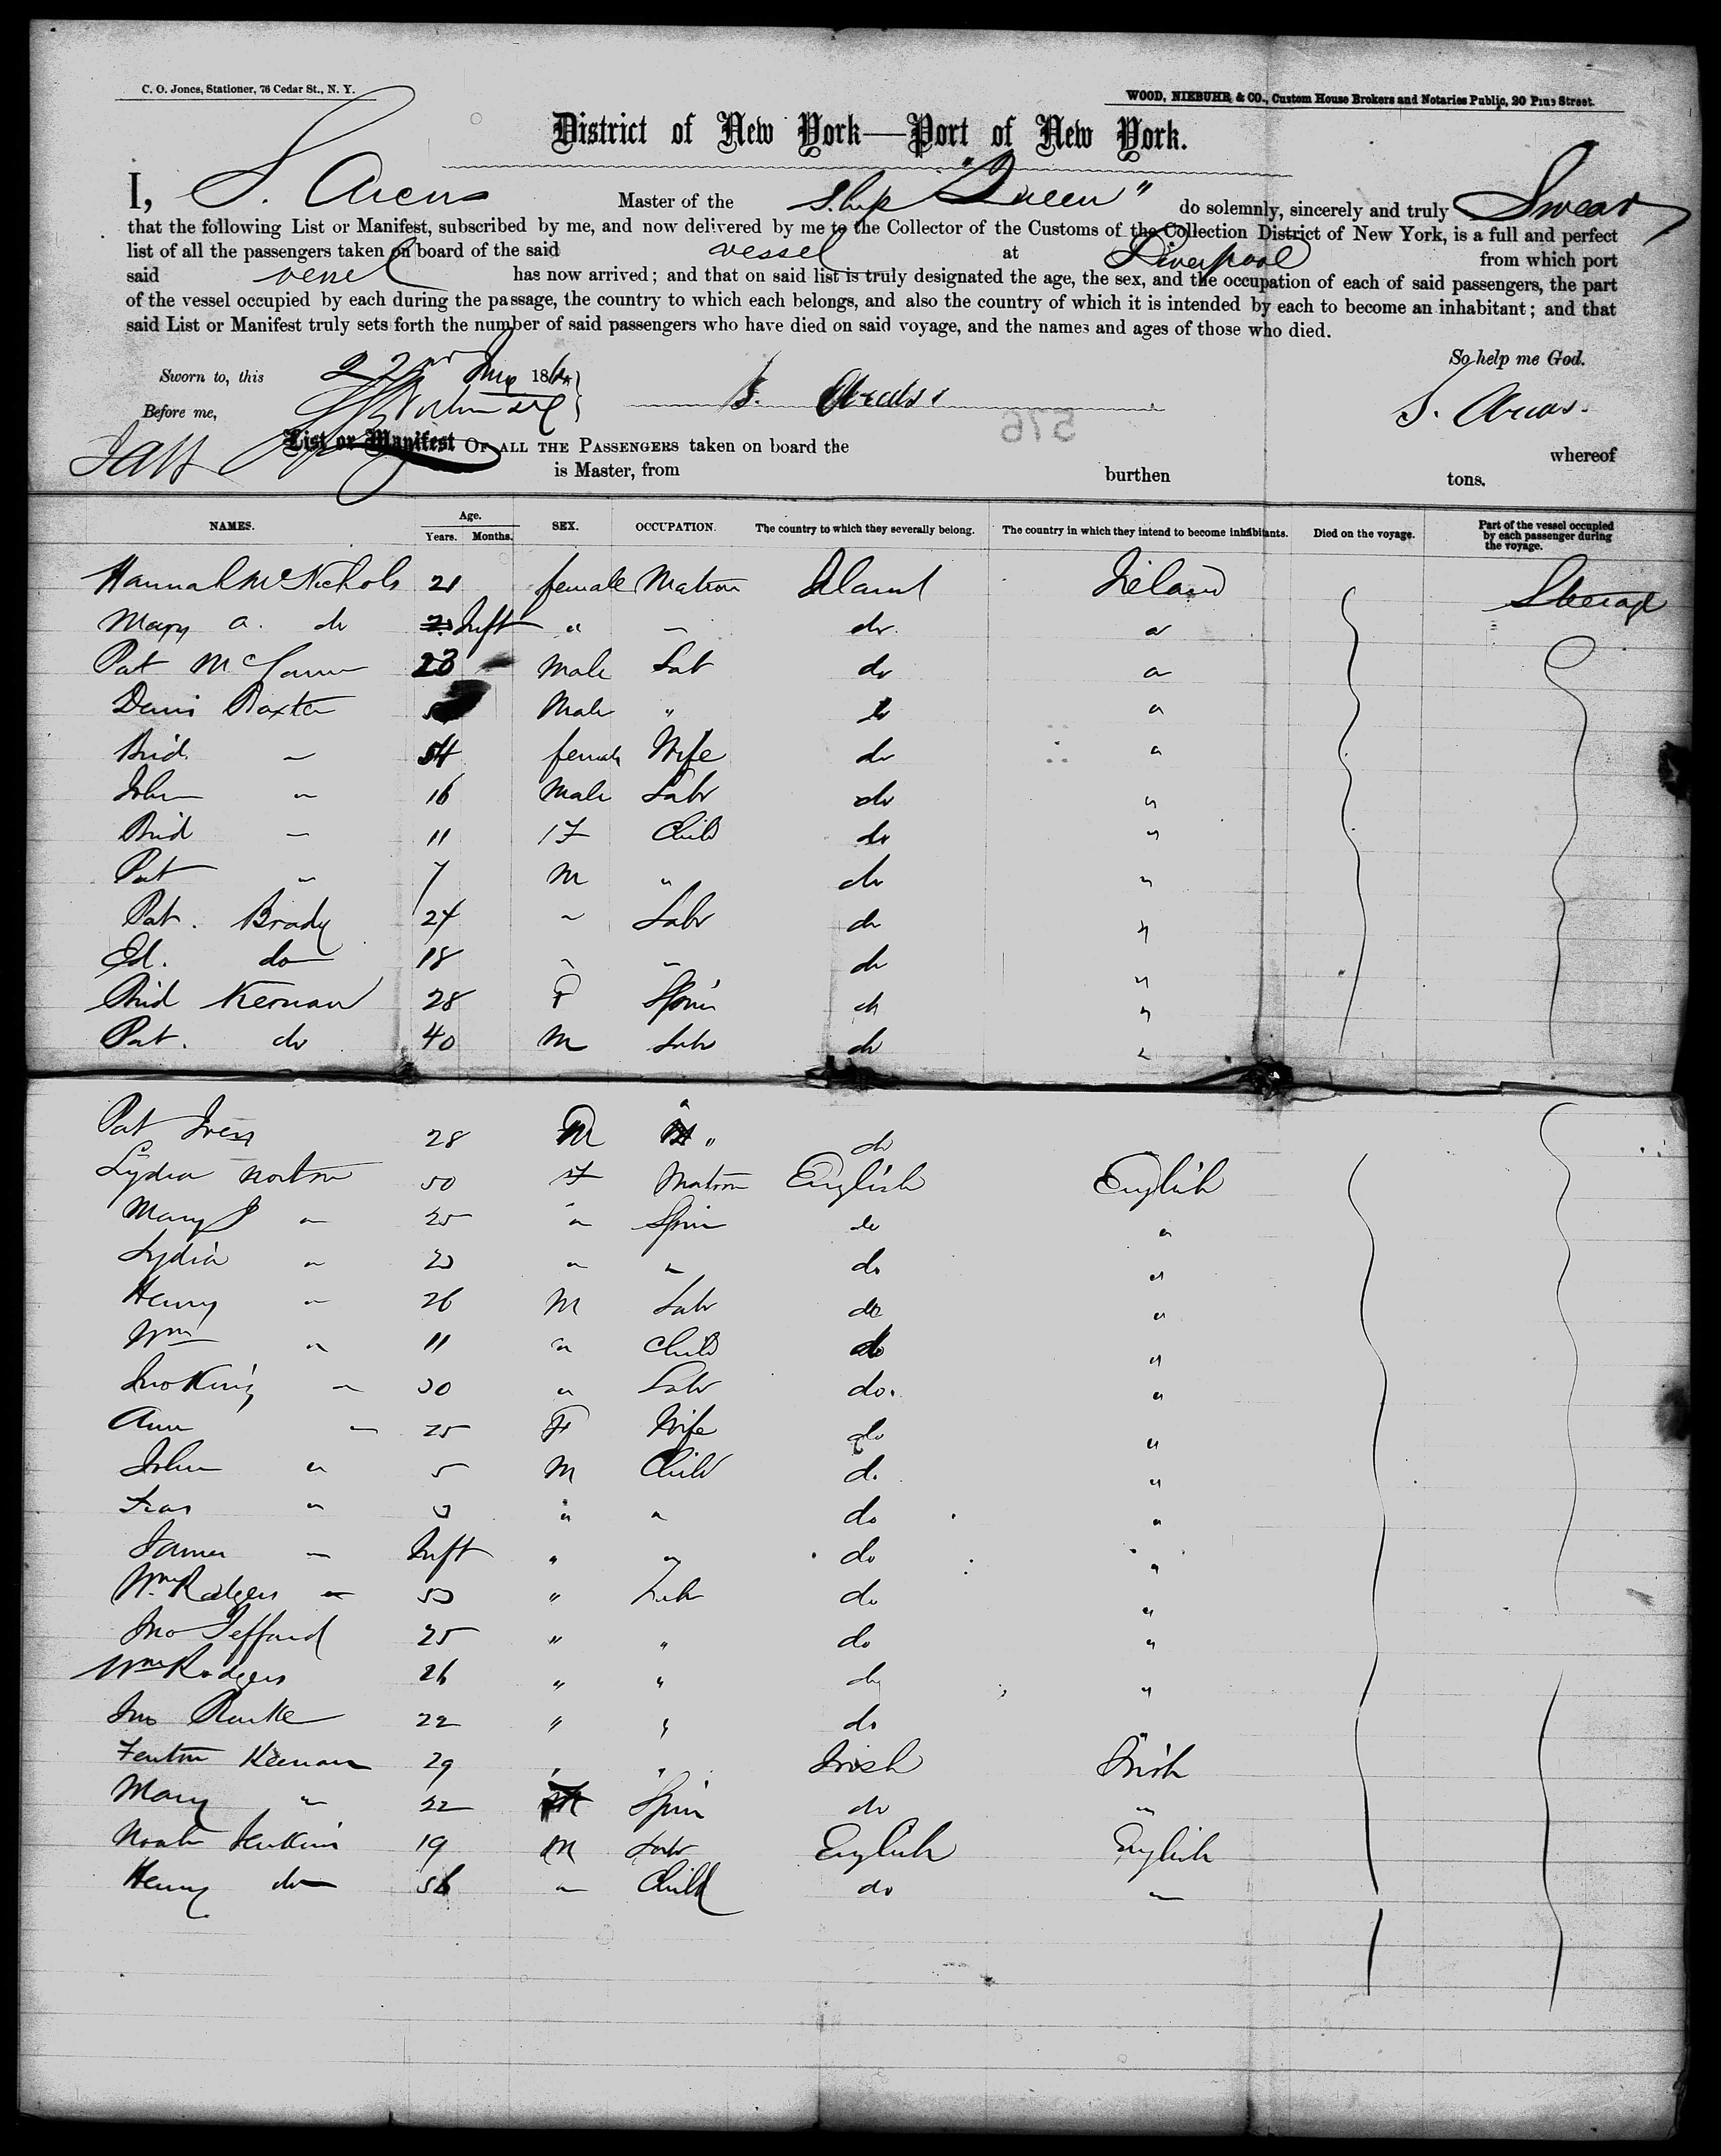 C. O. Jones, Stationer, 76 Cedar St., N. Y.
WOOD, NIEBUHR & CO., Custom House Brokers and Notaries Public, 20 Pine Street.
District of New York—Port of New York.
I, S. Master of the Ship "Queen" do solemnly, sincerely and truly Swear
that the following List or Manifest, subscribed by me, and now delivered by me to the Collector of the Customs of the Collection District of New York, is a full and perfect
list of all the passengers taken on board of the said vessel at Liverpool from which port
said vessel has now arrived; and that on said list is truly designated the age, the sex, and the occupation of each of said passengers, the part
of the vessel occupied by each during the passage, the country to which each belongs, and also the country of which it is intended by each to become an inhabitant; and that
said List or Manifest truly sets forth the number of said passengers who have died on said voyage, and the names and ages of those who died.
So help me God.
Sworn to, this 22 186
Before me,
576
List or Manifest OF ALL THE PASSENGERS taken on board the whereof
is Master, from burthen tons.
NAMES. Age. Years. Months. SEX. OCCUPATION. The country to which they severally belong. The country in which they intend to become inhabitants. Died on the voyage. Part of the vessel occupied by each passenger during the voyage.
Hannah McNichols 21 female Matron Ireland Steerage
Mary A. do Inft " do
Pat 23 Male Lab do
Denis Baxter Male " do
Brid " 54 female Wife do "
John " 16 Male Labr do "
Brid " 11 F Child do "
Pat " 7 M " do "
Pat. Brady 24 " Labr do "
Ed. do 18 " " do "
Brid Kernan 28 F Spin do "
Pat. do 40 M Labr do "
Pat 28 M " do
Lydia Norton 50 F Matron English English
Mary J " 25 " Spin do "
Lydia " " " do "
Henry " 26 M Labr do "
Wm " 11 " Child do "
Jno King " 30 " Labr do. "
Ann " 25 F Wife do "
John " 5 M Child do "
" 3 " " do "
James " Inft " " do "
Wm Rodgers " " Labr do "
Jno Jefford 25 " " do "
Wm Rodgers 26 " " do "
Jno 22 " " do "
Fenton Keenan 29 " " Irish Irish
Mary " 22 Spin do "
Noah Jenkins 19 M Labr English English
Henry do " Child do "